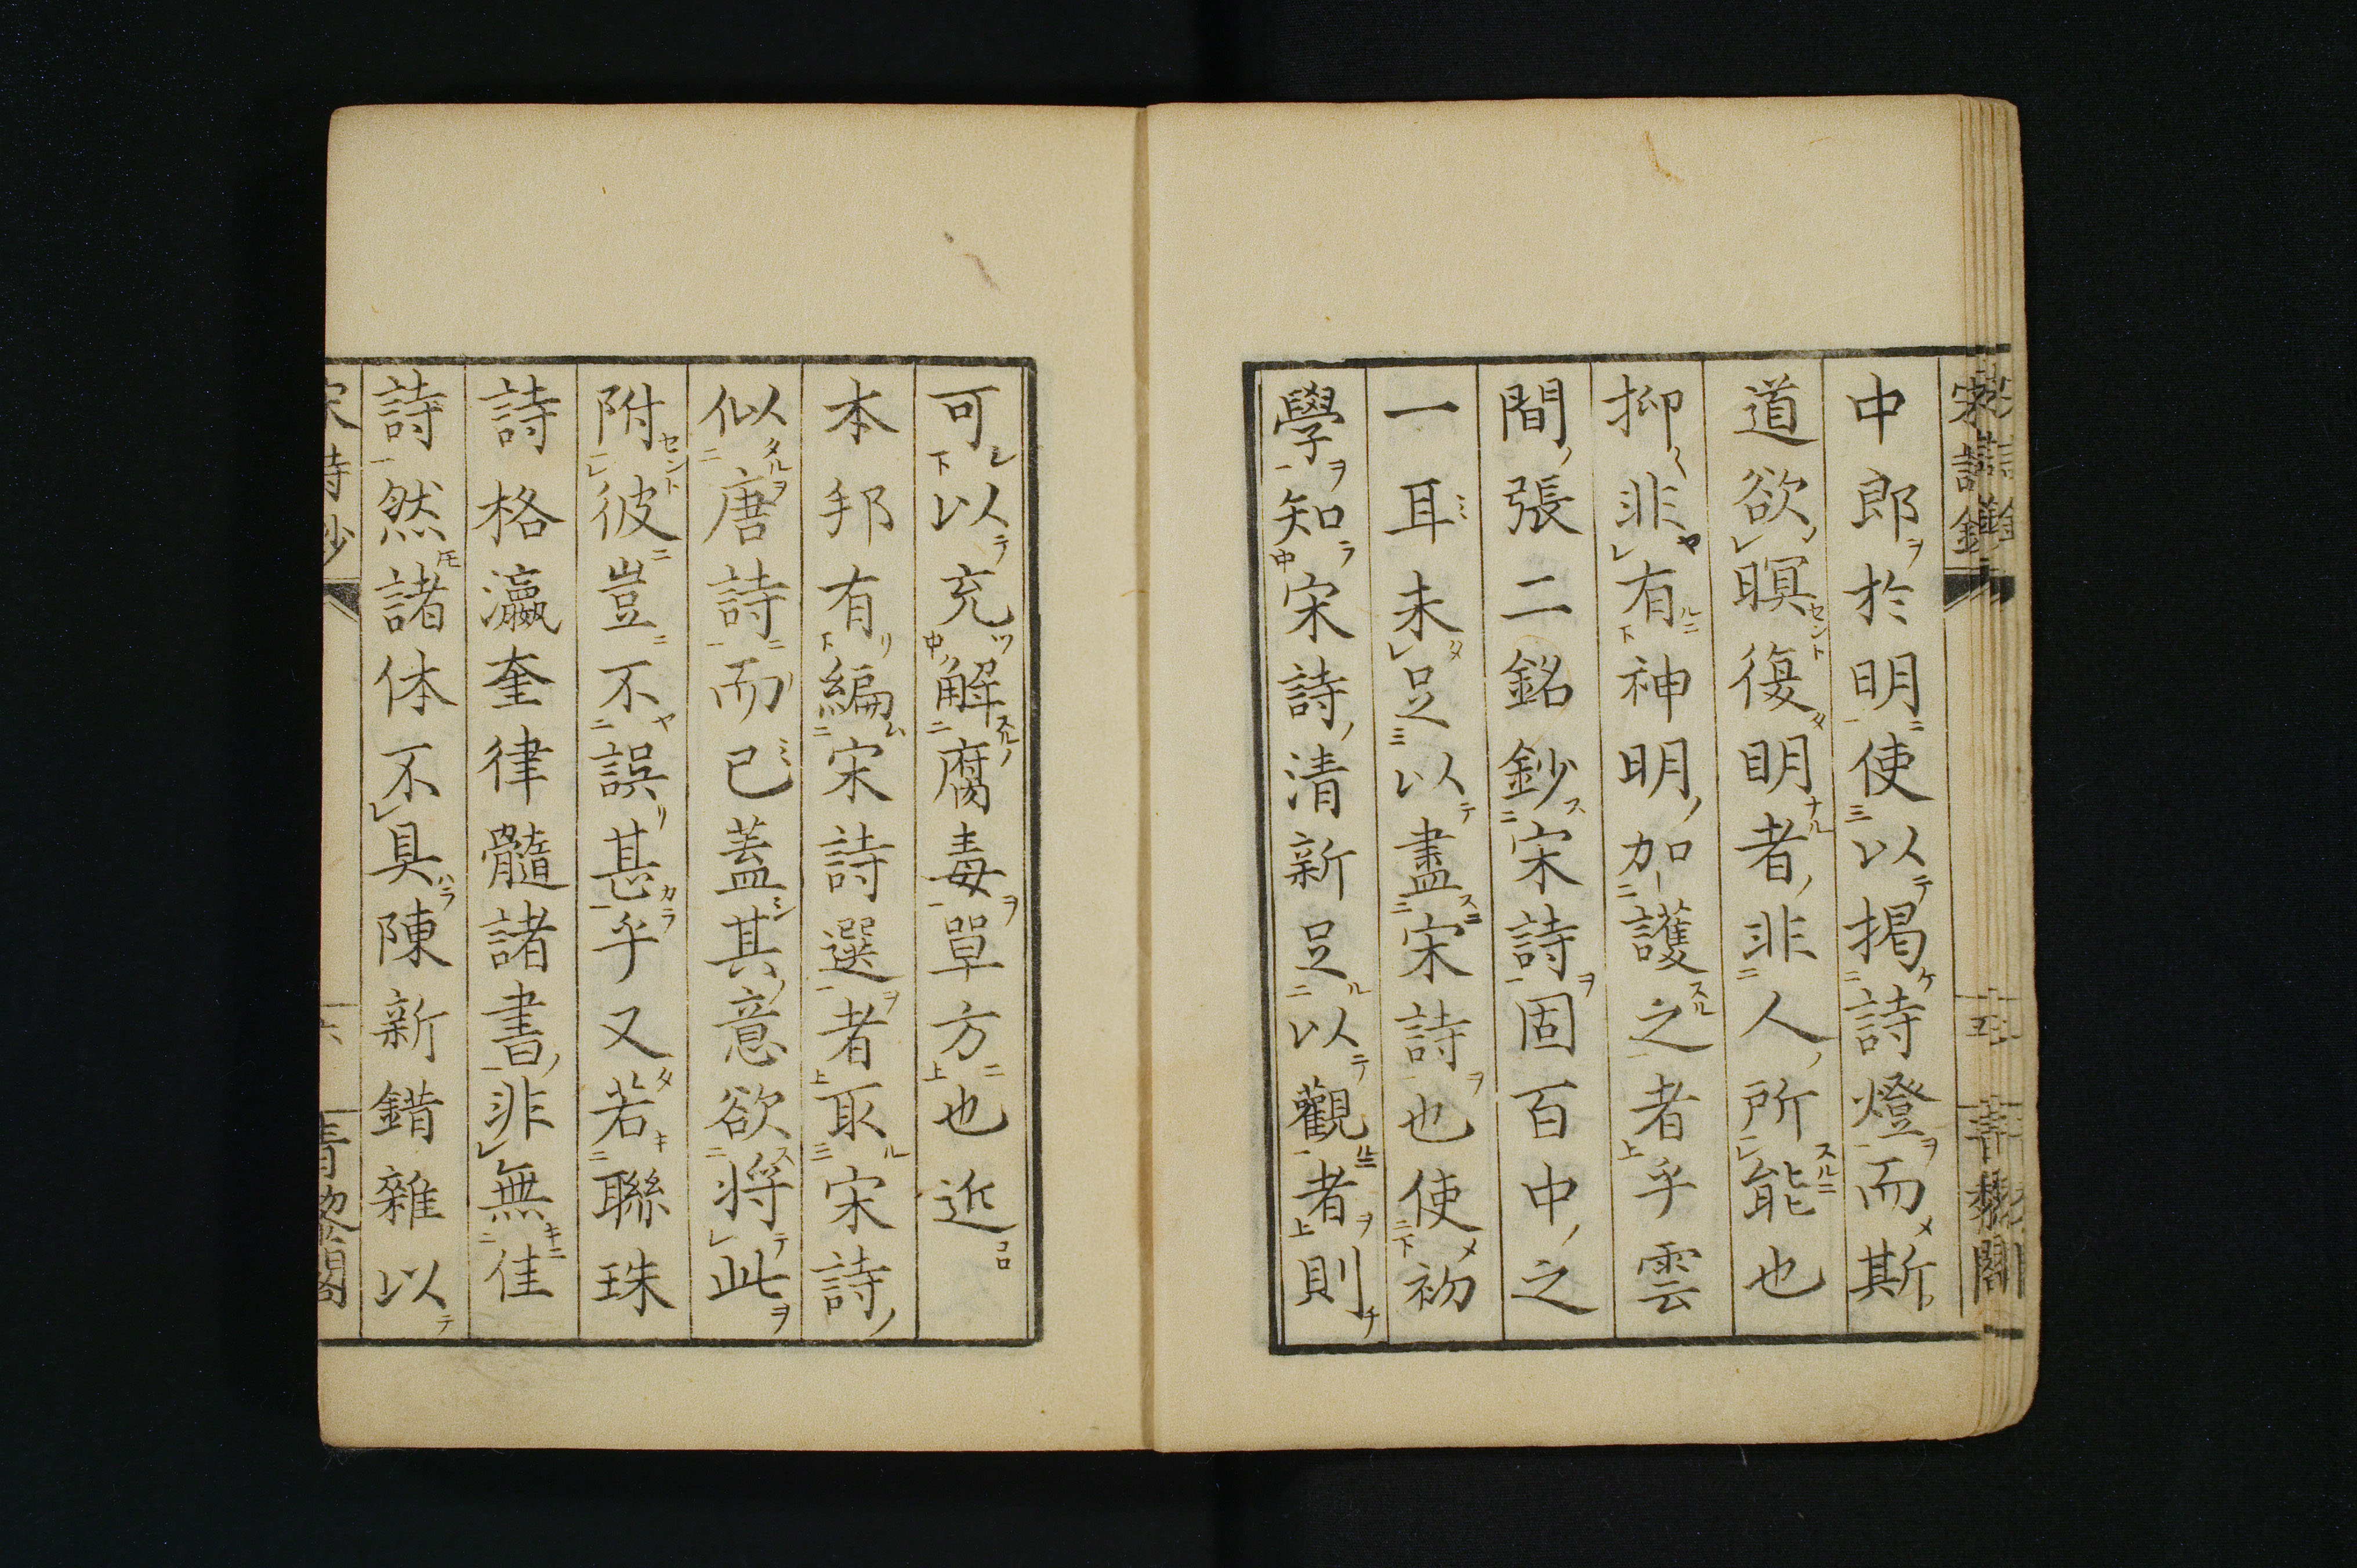 中郎於明使以揭詩燈而斯
道欲暝復明者非人所能也
抑非有神明加護之者乎雲
間張二銘鈔宋詩固百中之
一耳未足以盡宋詩也使初
學知宋詩清新足以觀者則
可以充解腐毒單方也近
本邦有編宋詩選者取宋詩
似唐詩而已蓋其意欲将此
附彼豈不誤甚乎又若聯珠
詩格瀛奎律髓諸書非無佳
詩然諸体不具陳新錯雜以